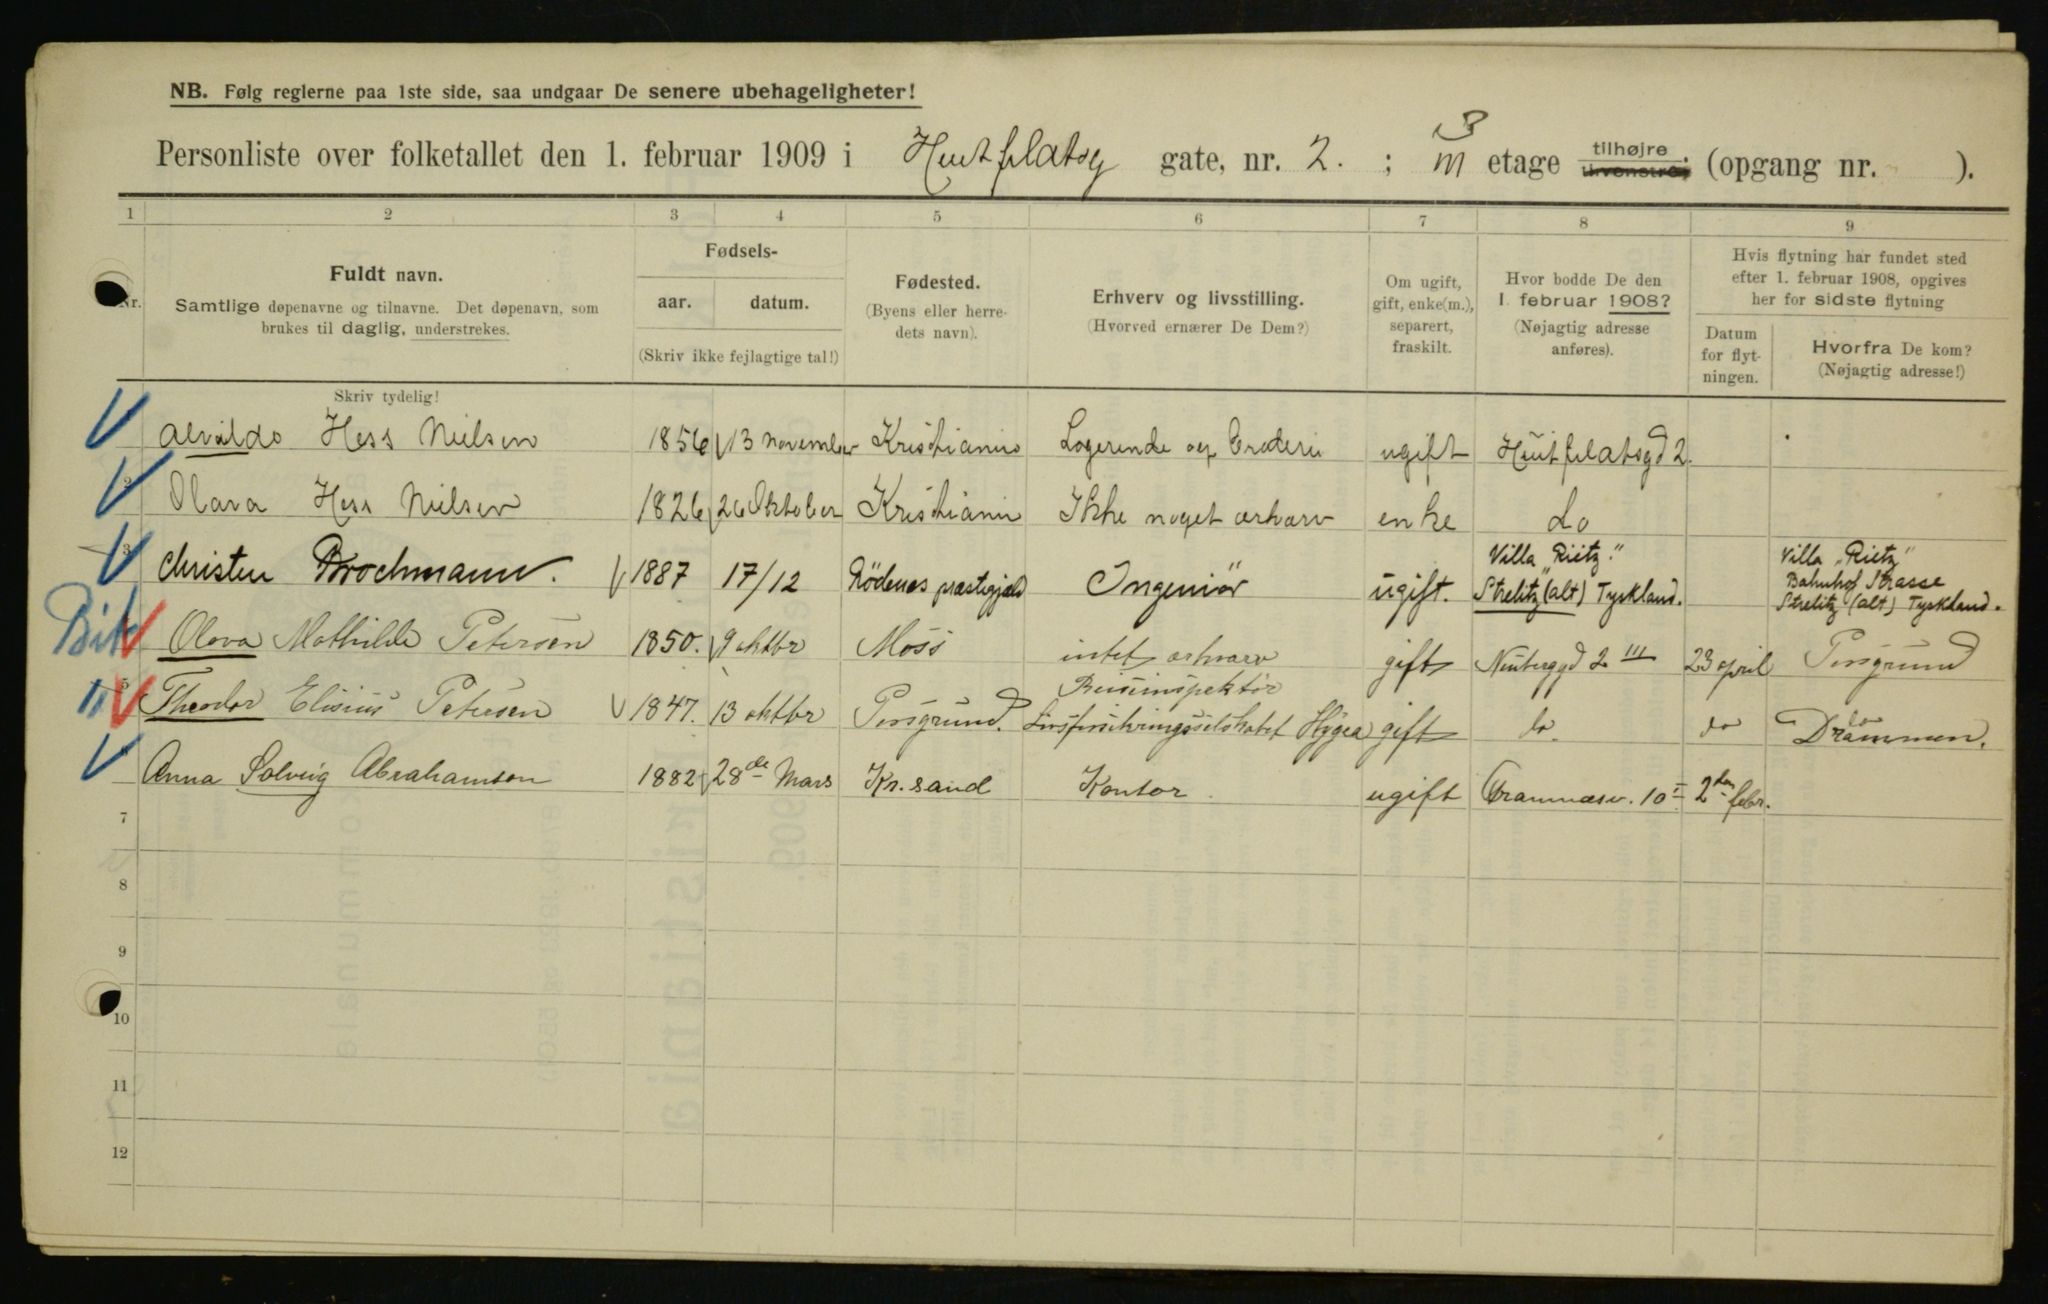 NB. Følg reglerne paa 1ste side, saa undgaar De senere ubehageligheter!
Personliste over folketallet den 1. februar 1909 i Huitfelatsg gate, nr. 2. ; 3 III etage tilhøjre. tilvenstre; (opgang nr. ).
1 2 3 4 5 6 7 8 9
Nr.
Fuldt navn.
Samtlige døpenavne og tilnavne. Det døpenavn, som
brukes til daglig, understrekes.
Fødsels-
aar. datum.
(Skriv ikke fejlagtige tal!)
Fødested.
(Byens eller herre-
dets navn).
Erhverv og livsstilling.
(Hvorved ernærer De Dem?)
Om ugift,
gift, enke(m.),
separert,
fraskilt.
Hvor bodde De den
1. februar 1908?
(Nøjagtig adresse
anføres).
Hvis flytning har fundet sted
efter 1. februar 1908, opgives
her for sidste flytning
Datum
for flyt-
ningen.
Hvorfra De kom?
(Nøjagtig adresse!)
Skriv tydelig!
Alvilda Hess Nielsen 1856 13 november Kristiania Logerende og Broderi ugift Huitfelatsgd 2.
2 Olava Hess Nielsen 1826 26 Oktober Kristiania Ikke noget erhverv enke do
3 Christen Brochmann. 1887 17/12 Rödenes præstegjeld Ingeniör ugift. Villa "Rietz." Strelitz (alt) Tyskland. Villa "Rietz" Bahnhof Strasse Strelitz (alt) Tyskland.
Olava Mathilde Petersen 1850. 9 oktbr Moss intet erhverv gift 2 III 23 april Porsgrund
5 Theodor Elisius Petersen 1847. 13 oktbr Porsgrund. Reiseinspektör Livsforsikringsselskabet Hygea gift do. do do Drammen.
Anna Solveig Abrahamsen 1882 28de Mars Kr. sand Kontor. ugift 10 I 2den febr.
7
8
9
10
11
12